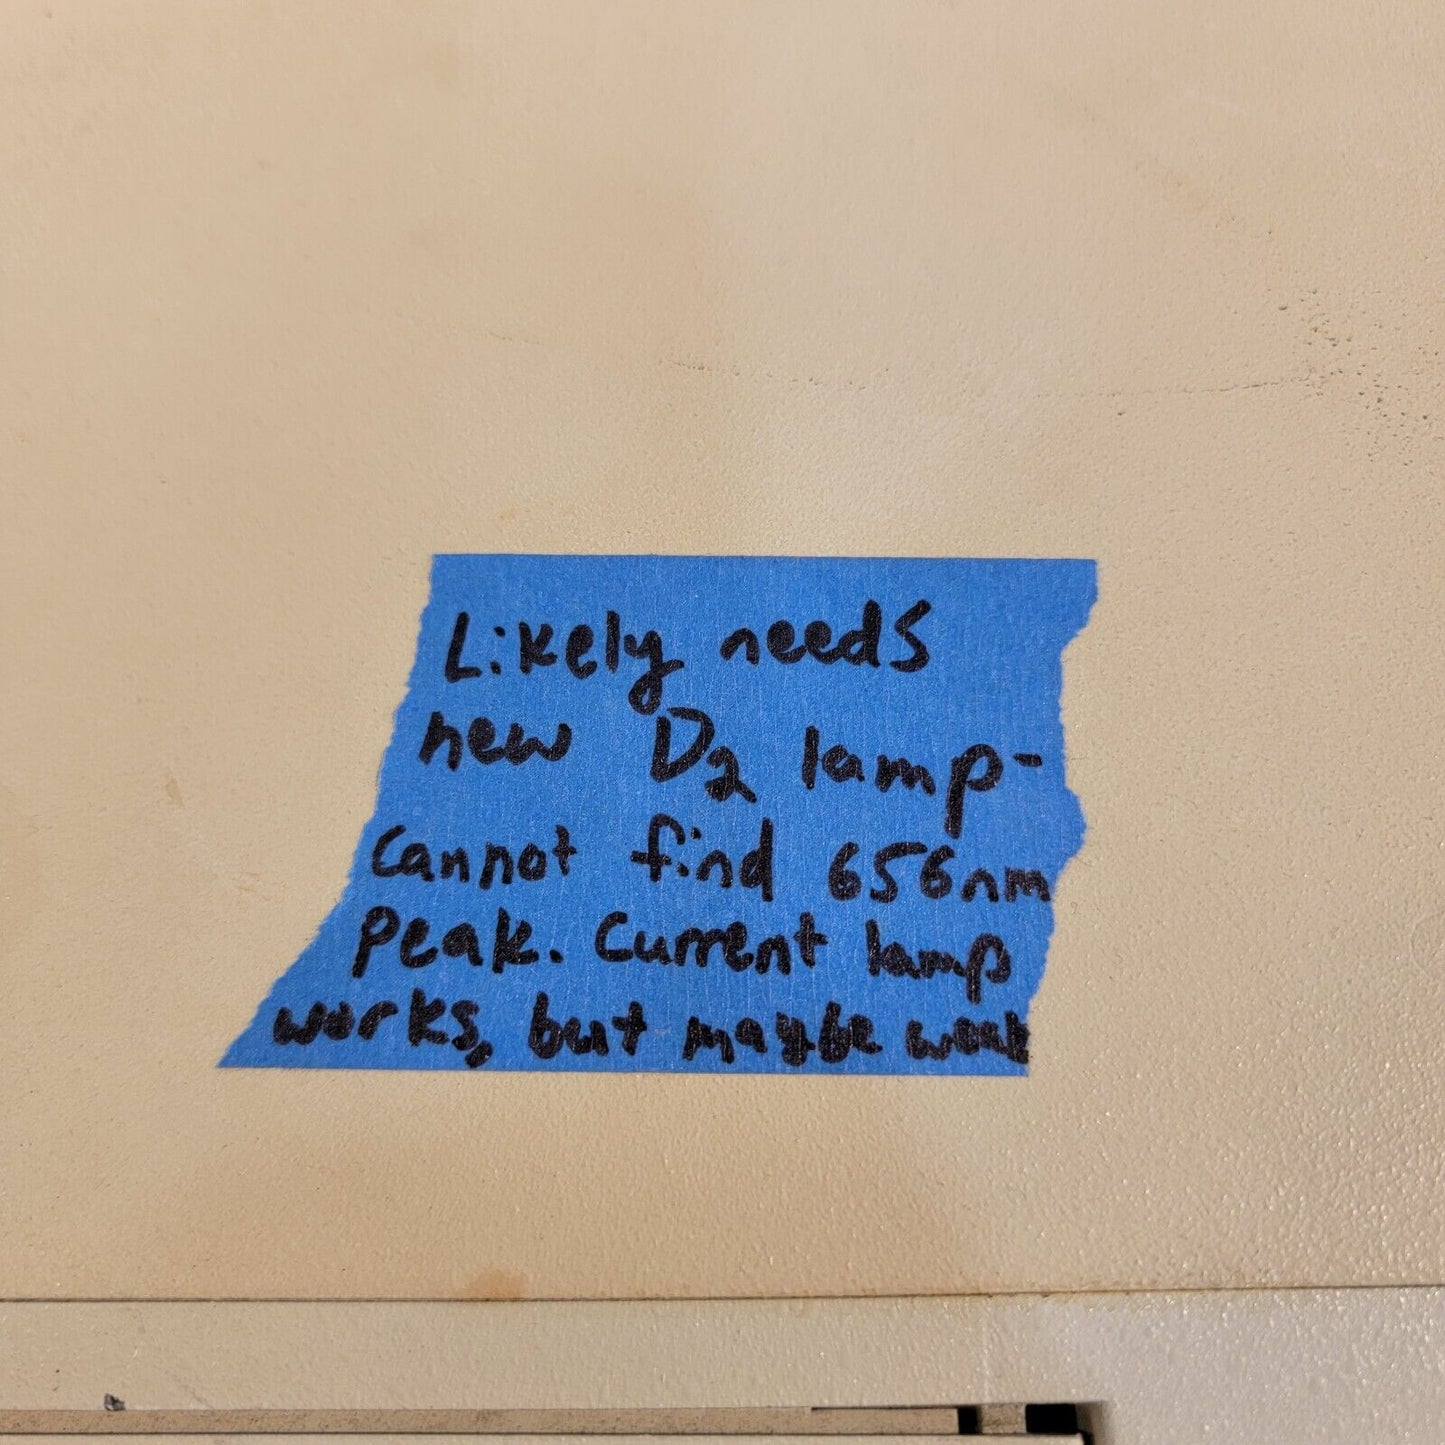 Likely needs
new D₂ lamp-
Cannot find 656nm
Peak. Current lamp
works, but maybe weak